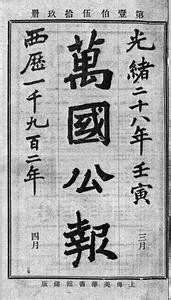 第壹伯伍拾玖冊
光緒二十八年壬寅
三月
萬國公報
西歷一千九百二年
四月
上海美華書館